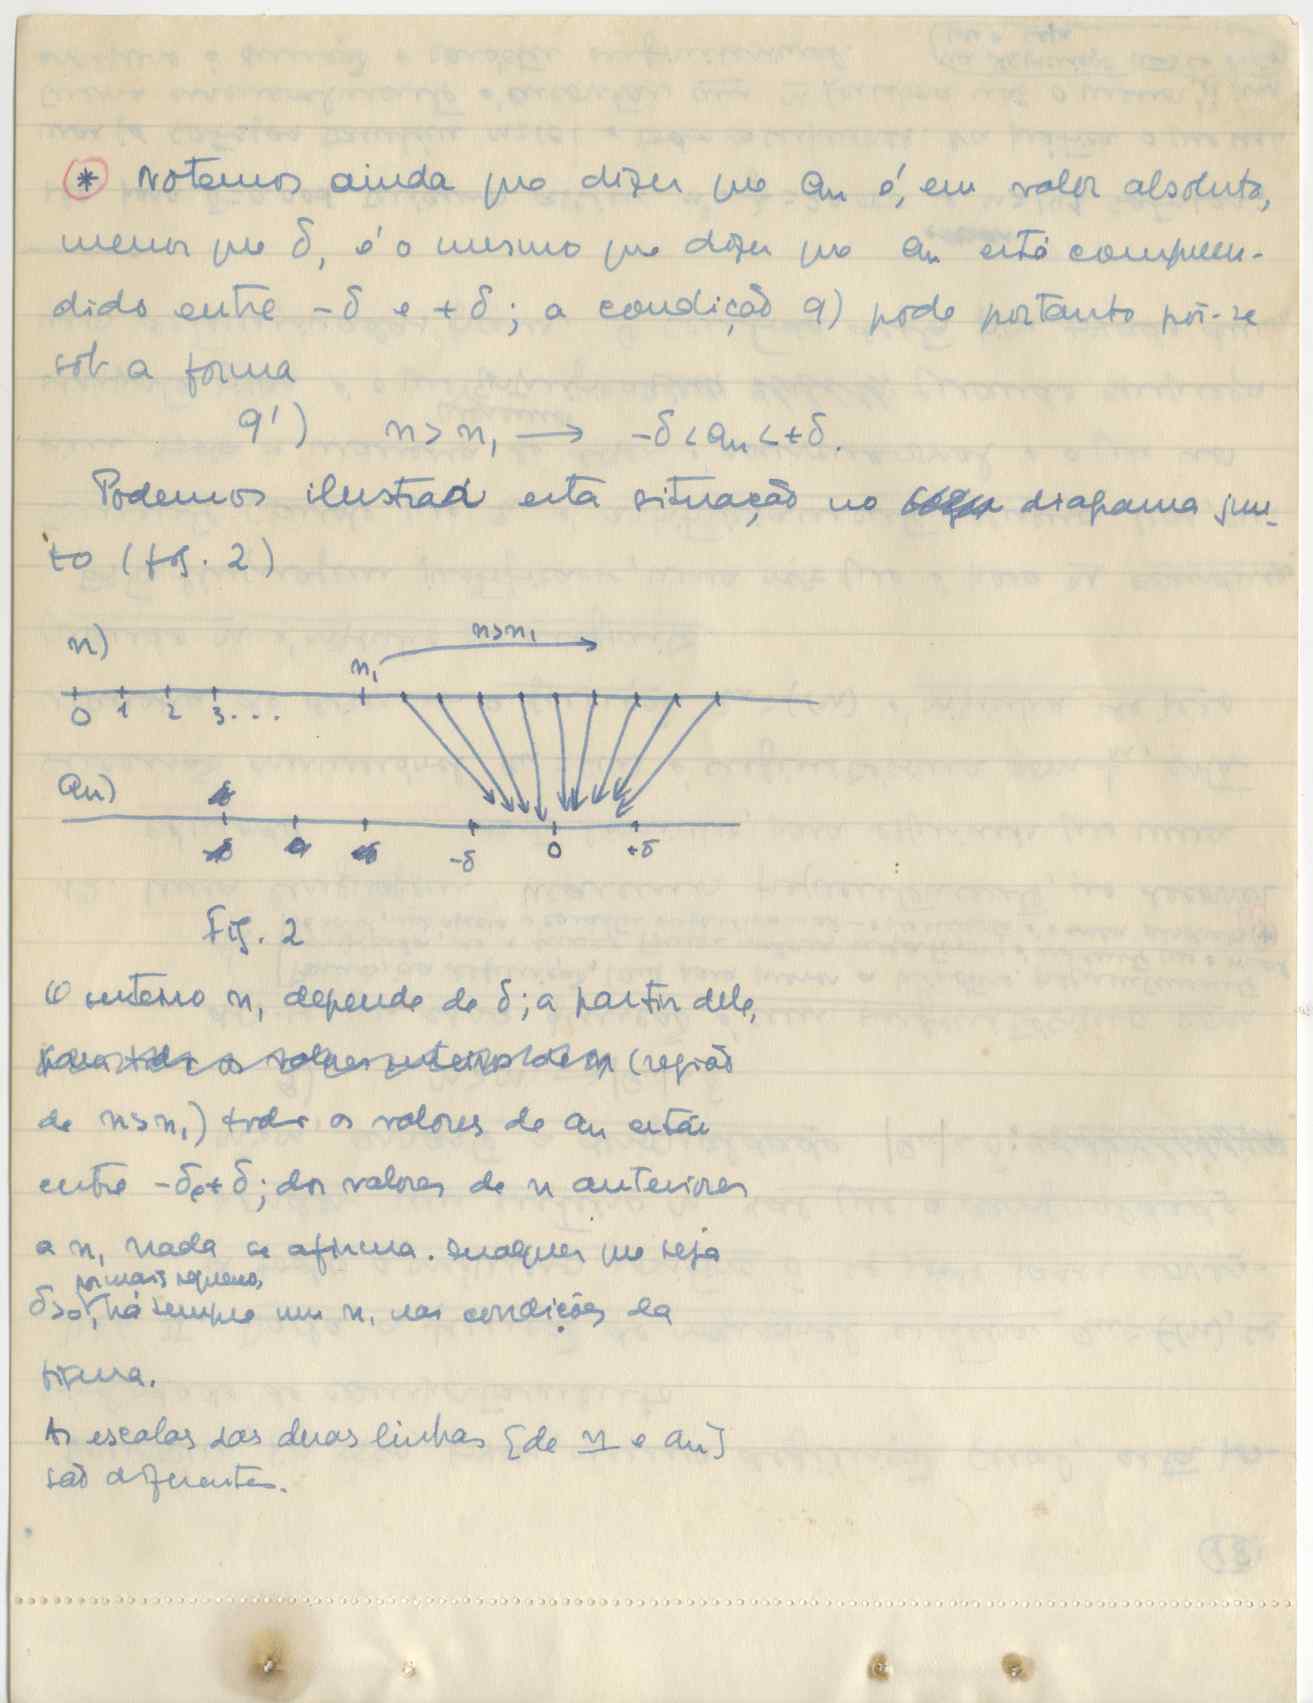 * Notemos ainda que dizer que an é, em valor absoluto,
menor que δ, é o mesmo que dizer que an está compreen-
dido entre -δ e +δ; a condição 9) pode portanto pôr-se
sob a forma
9') n > n₁ ⟶ -δ < an < +δ.
Podemos ilustrar esta situação no diagrama jun-
to (fig. 2)
n) n₁ n>n₁
0 1 2 3...
an)
-δ 0 +δ
Fig. 2
O inteiro n₁ depende de δ; a partir dele,
(região
de n>n₁) todos os valores de an estão
entre -δ e + δ; dos valores de n anteriores
a n₁ nada se afirma. Qualquer que seja
por mais pequeno,
δ>0, há sempre um n₁ nas condições da
figura.
As escalas das duas linhas [de n e an]
são diferentes.